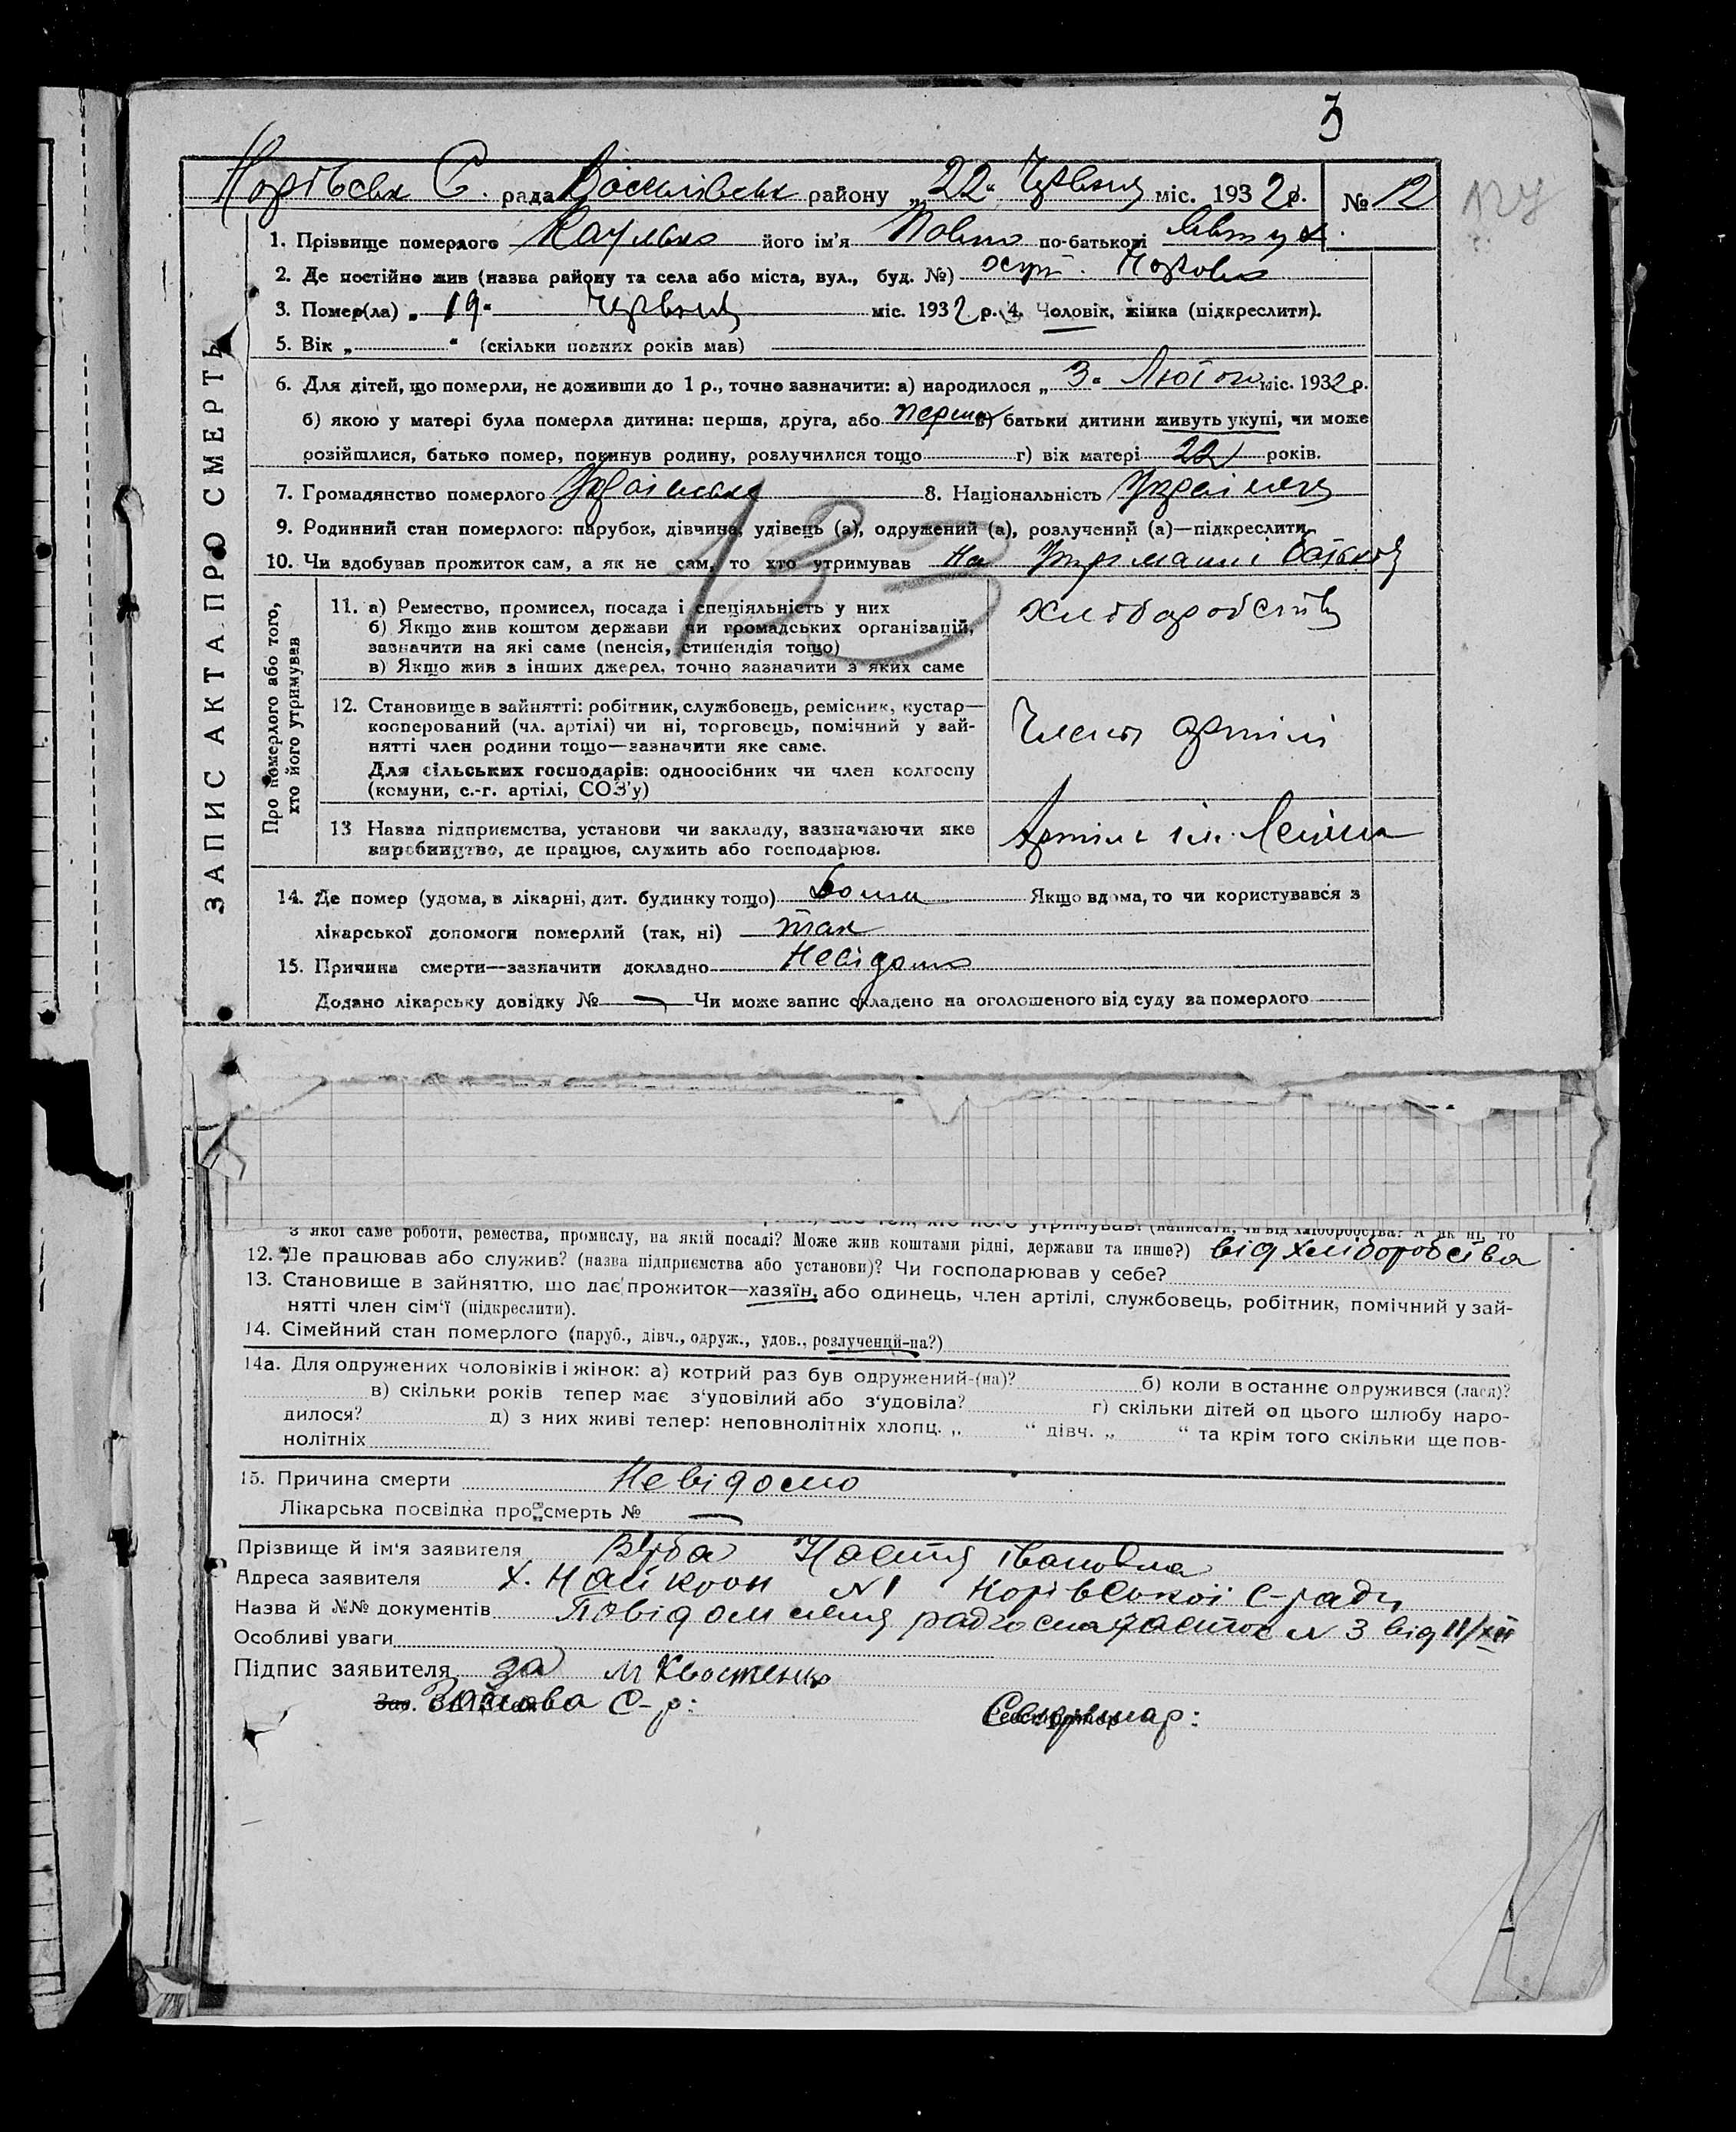 3
Норівськ С. рада Василівськ району „22“ Червня міс. 1932 р. № 12
1. Прізвище померлого його ім'я Павло по-батькові
2. Де постійно жив (назва району та села або міста, вул., буд. №) хут.
3. Помер(ла) „19“ Червня міс. 1932 р. 4. Чоловік, жінка (підкреслити).
5. Вік „ “ (скільки повних років мав)
6. Для дітей, що померли, не доживши до 1 р., точно зазначити: а) народилося „3“ Лютого міс. 1932 р.
б) якою у матері була померла дитина: перша, друга, або перша в) батьки дитини живуть укупі, чи може
розійшлися, батько помер, покинув родину, розлучилися тощо г) вік матері 22 років.
7. Громадянство померлого 8. Національність
9. Родинний стан померлого: парубок, дівчина, удівець (а), одружений (а), розлучений (а)—підкреслити
10. Чи вдобував прожиток сам, а як не сам, то хто утримував На Утриманні батьків
133
ЗАПИС АКТА ПРО СМЕРТЬ
Про померлого або того,
хто його утримував
11. а) Ремество, промисел, посада і спеціяльність у них
б) Якщо жив коштом держави чи громадських організацій,
зазначити на які саме (пенсія, стипендія тощо)
в) Якщо жив з інших джерел, точно зазначити з яких саме
12. Становище в зайнятті: робітник, службовець, ремісник, кустар—
кооперований (чл. артілі) чи ні, торговець, помічний у зай-
нятті член родини тощо—зазначити яке саме.
Для сільських господарів: одноосібник чи член колгоспу
(комуни, с.-г. артілі, СОЗ'у)
Член артілі
13 Назва підприємства, установи чи закладу, зазначаючи яке
виробництво, де працює, служить або господарює.
Артіль ім. Леніна
14. Де помер (удома, в лікарні, дит. будинку тощо) Дома Якщо вдома, то чи користувався з
лікарської допомоги померлий (так, ні) так
15. Причина смерти—зазначити докладно Невідомо
Додано лікарську довідку № — Чи може запис складено на оголошеного від суду за померлого
з якої саме роботи, ремества, промислу, на якій посаді? Може жив коштами рідні, держави та инше?) від хліборобства
12. Де працював або служив? (назва підприємства або установи)? Чи господарював у себе?
13. Становище в зайняттю, що дає прожиток—хазяїн, або одинець, член артілі, службовець, робітник, помічний у зай-
нятті член сім'ї (підкреслити).
14. Сімейний стан померлого (паруб., дівч., одруж., удов., розлучений-на?)
14а. Для одружених чоловіків і жінок: а) котрий раз був одружений-(на)? б) коли востаннє одружився (лася)?
в) скільки років тепер має з'удовілий або з'удовіла? г) скільки дітей од цього шлюбу наро-
дилося? д) з них живі тепер: неповнолітніх хлопц. „ “ дівч. „ “ та крім того скільки ще пов-
нолітніх
15. Причина смерти Невідомо
Лікарська посвідка про смерть № —
Прізвище й ім'я заявителя Верба Настя Івановна
Адреса заявителя х. Найкрон №1 Норівської С-ради
Назва й №№ документів Повідомлення № 3 від 11/XII
Особливі уваги
Підпис заявителя за М Хвостенко
Голова С-р: Секретар: